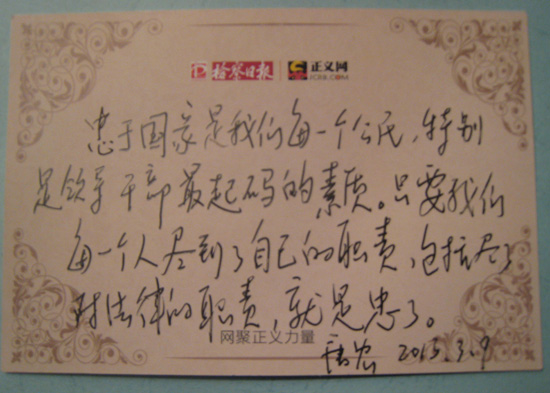 检察日报 正义网
JCRB.COM
忠于国家是我们每一个公民，特别
是领导干部最起码的素质。只要我们
每一个人尽到了自己的职责，包括尽了
对法律的职责，就是忠了。
网聚正义力量
2015.3.9